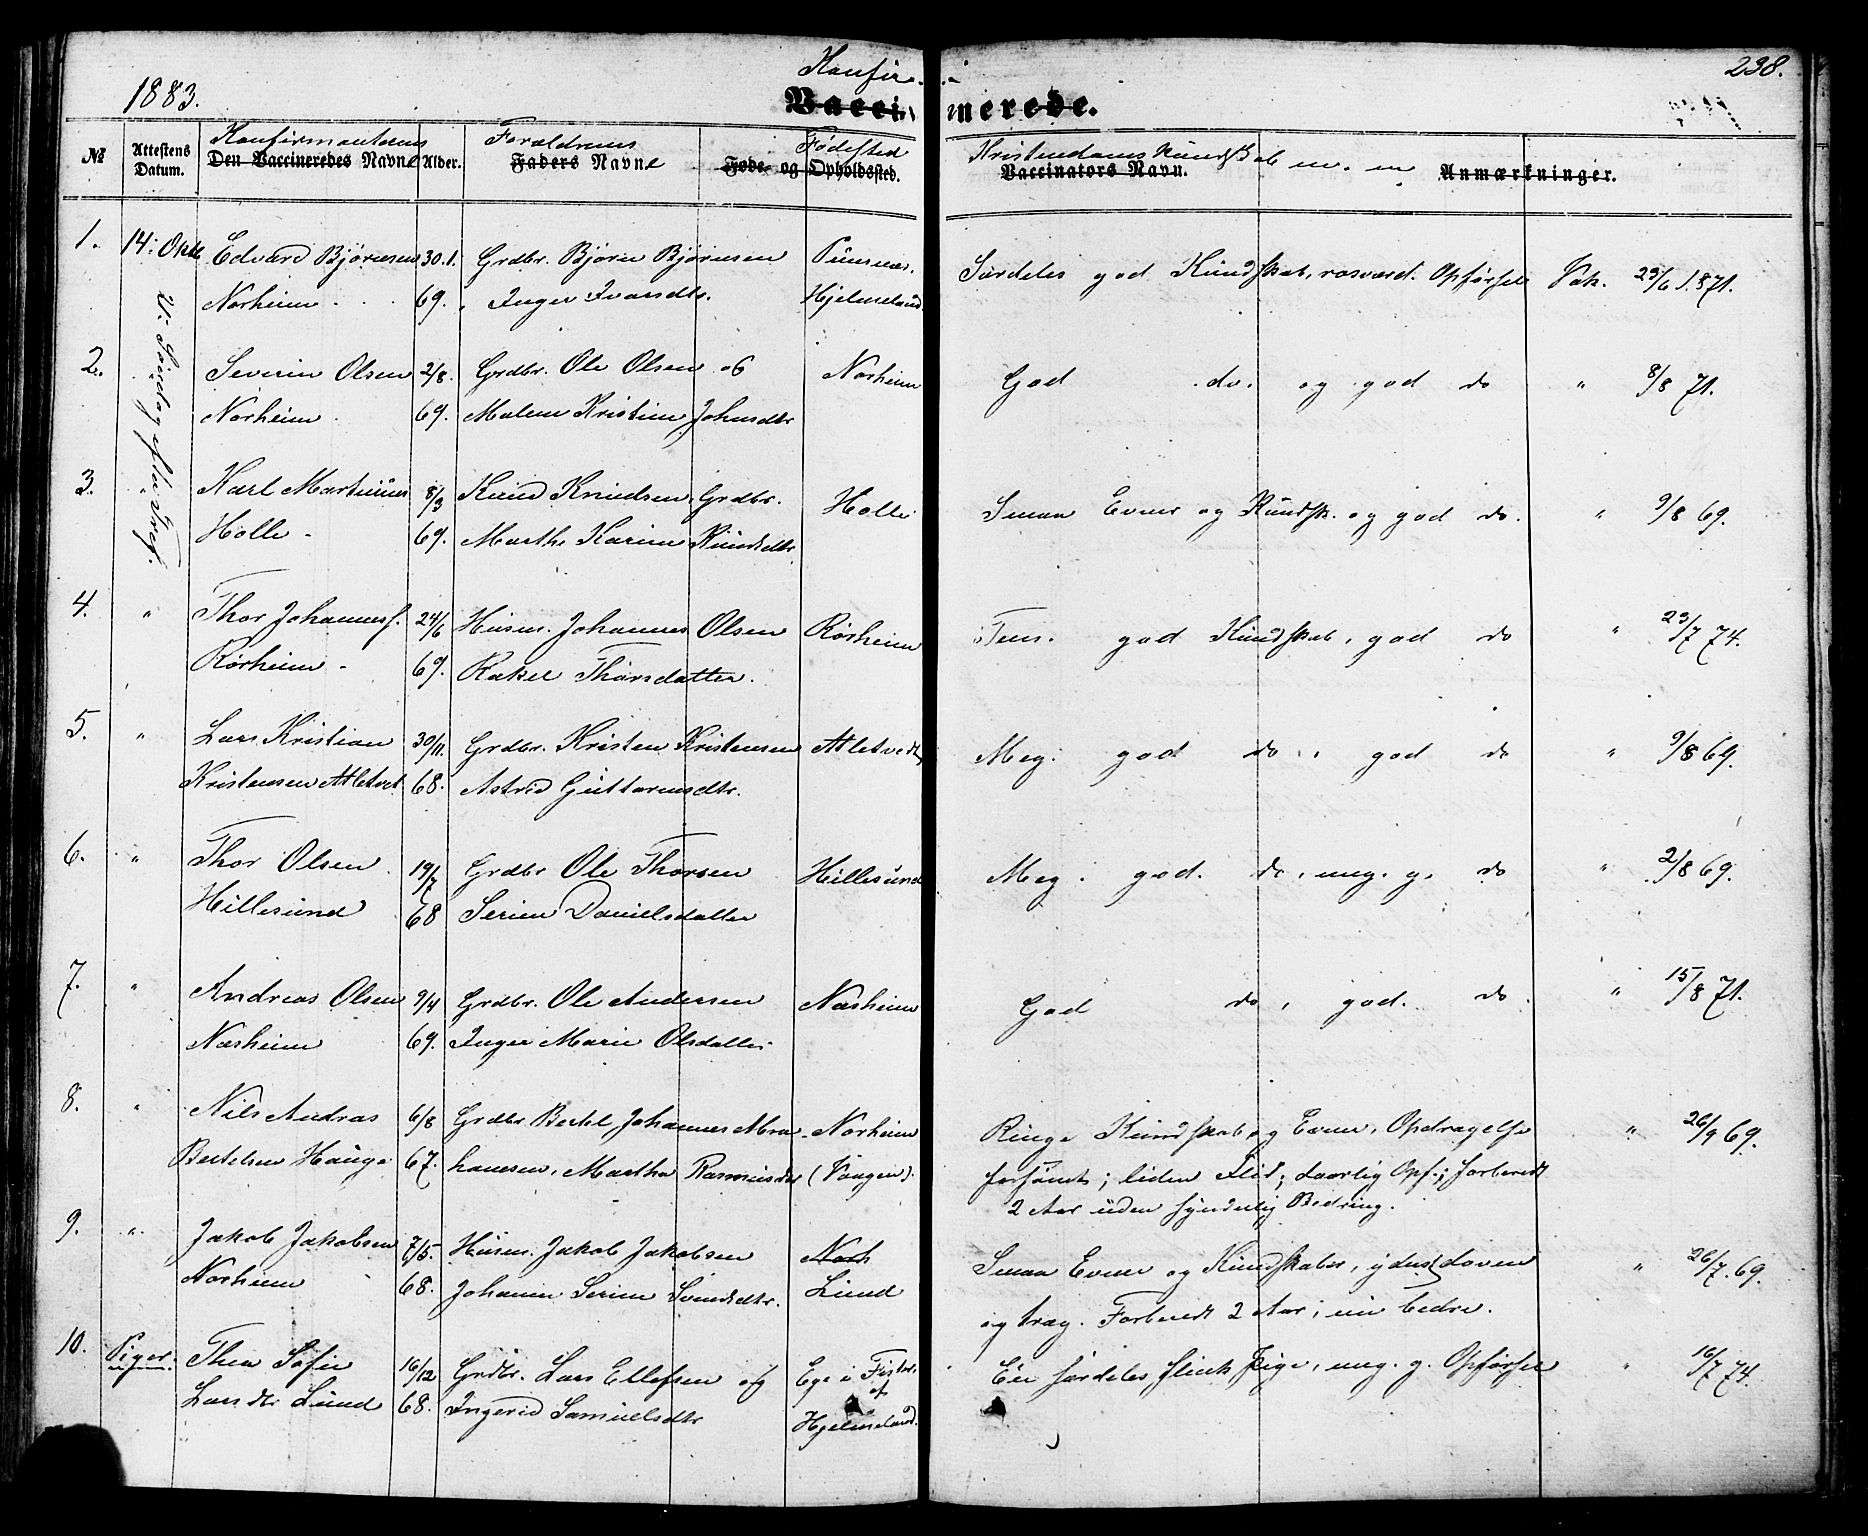 1883.
Konfir
238.
Vaccinerede.
№ Attestens Datum. Konfirmantens Den Vaccineredes Navne Alder. Forældrenes Faders Navne Fødested Føde- og Opholdssted. Kristendomskundskab m. m. Vaccinators Navn. Anmærkninger.
1. 14: Oktb Edvard Bjørnsen 30.1. Grdbr. Bjørn Bjørnsen Særdeles god Kundskab, rosværd. Opførsel Vak. 23/6 1871.
Norheim 69. Inger Ivarsdtr. Hjelmeland
21: Søndag efter Tref.
2. Severin Olsen 2/8. Grdbr. Ole Olsen og Norheim God do. og god do " 8/8 71.
Norheim 69. Malene Kristine Johnsdtr
3. " Karl Martinius 8/3 Knud Knudsen, Grdbr. Holle Smaa Evner og Kundsk. og god do. " 9/8 69.
Holle 69. Marthe Karine Knudsdtr.
4. " Thor Johannesf. 24/6 Husm. Johannes Olsen Rørheim Tem. god Kundskab, god do " 23/7 74.
Rørheim 69. Rakel Thorsdatter.
5. " Lars Kristian 30/11. Grdbr. Kristen Kristensen Atletvedt Meg. god do, god do " 9/8 69.
Kristensen Atletvet 68. Astrid Guttormsdtr.
6. " Thor Olsen 19/7 Grdbr Ole Thorsen Hillesund Meg. god. do, meg. g. do " 2/8 69.
Hillesund 68 Serine Danielsdatter
7. " Andreas Olsen 9/4 Grdbr. Ole Andersen Næsheim God do, god. do. " 15/8 71.
Næsheim 69. Inger Marie Olsdatter
8. " Nils Andras 6/8 Grdbr Bertel Johannes Abra- Norheim Ringe Kundskab og Evner, Opdragelse " 26/9 69.
Bertelsen Hauge 67. hamsen, Martha Rasmusdtr (Vaagen). forsømt; liden Flid; daarlig Opf.; forberedt
2 Aar uden synderlig Bedring.
9. " Jakob Jakobsen 7/5. Husm. Jakob Jakobsen Norh Smaa Evner og Kundskaber, yderst doven " 26/7. 69.
Norheim 68. Johanne Serine Svendsdtr. Lund og træg. Forberedt 2 Aar; nu bedre.
10. Piger: Thea Sofie 16/12 Grdbr. Lars Ellefsen og Ege i Fister af En særdeles flink Pige, meg. g. Opførsel " 16/7 74.
Larsdtr Lund 68. Ingerid Samuelsdtr Hjelmeland.